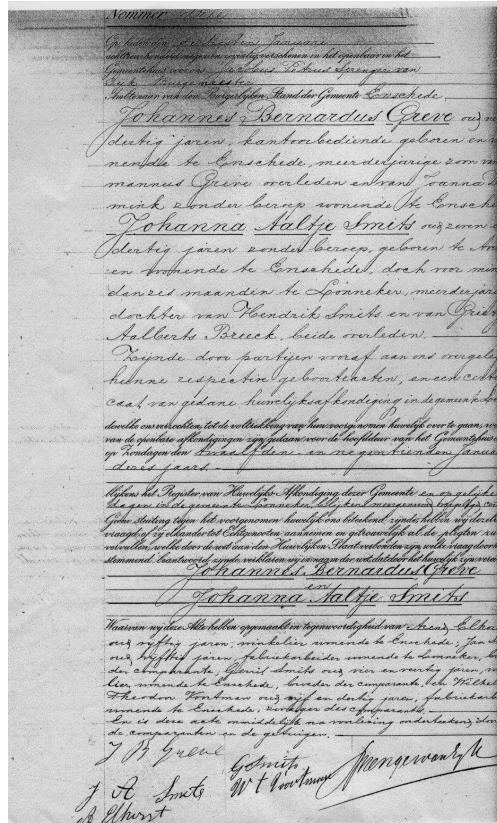 Nommer
Op heden den
achttien honderd negen en negentig verschenen in het openbaar in het
Gemeentehuis voor ons Jacobus Petrus Sprenger van
Eijk Burgemeester
Ambtenaar van den Burgerlijken Stand der Gemeente Enschede
Johannes Bernardus Greve oud
dertig jaren, kantoorbediende geboren en
nende te Enschede, meerderjarige zoon
mannus Greve overleden en van Joanna
mink zonder beroep wonende te Ensche
Johanna Aaltje Smits oud zeven
dertig jaren zonder beroep, geboren te
en wonende te Enschede, doch voor min
dan zes maanden te Lonneker, meerderjari
dochter van Hendrik Smits en van Griet
Aalberts Breeck, beide overleden.
Zijnde door partijen vooraf aan ons overgele
hunne respectiv geboorteacten, en een certi
caat van gedane huwelijksafkondiging in de gemeente
dewelke ons verzochten, tot de voltrekking van hun voorgenomen huwelijk over te gaan,
van de openbare afkondigingen zijn gedaan voor de hoofddeur van het Gemeentehuis
op Zondagen den twaalfden en negentienden Januari
dezes jaars.
blijkens het Register van Huwelijks-Afkondiging dezer Gemeente en op gelijke
dagen in de gemeente Lonneker, blijkens
Geene stuiting tegen het voorgenomen huwelijk ons beteekend zijnde, hebben wij dezel
vraagd, of zij elkander tot Echtgenooten aannemen en getrouwelijk al de pligten zu
vervullen, welke door de wet aan den Huwelijken Staat verbonden zijn, welke vraag door
stemmend beantwoord zijnde, verklaren wij in naam der wet, dat door het huwelijk zijn
Johannes Bernardus Greve
en
Johanna Aaltje Smits
Waarvan wij deze Akte hebben opgemaakt, in tegenwoordigheid van Arend Elhor
oud vijftig jaren, winkelier wonende te Enschede, Jan
oud vijftig jaren, fabriekarbeider wonende te Lonneker,
der comparante, Gerrit Smits oud vier en veertig jaren,
lier, wonende te Enschede, broeder der comparante, en Wilhel
Theodoor Voortman oud vijf en dertig jaren, fabriekarb
wonende te Enschede, zwager des comparants.
En is deze acte onmiddelijk na voorlezing onderteekend door
de comparanten en de getuigen.
J B Greve
G Smits
W t Voortman
Sprengervaneijk
J A Smits
A Elhorst